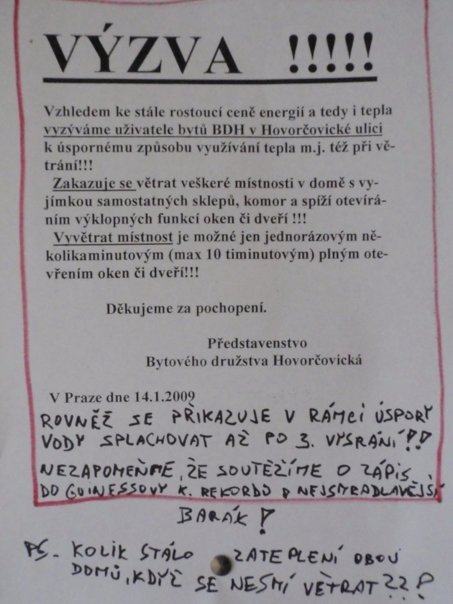 VÝZVA !!!!!
Vzhledem ke stále rostoucí ceně energií a tedy i tepla
vyzýváme uživatele bytů BDH v Hovorčovické ulici
k úspornému způsobu využívání tepla m.j. též při vě-
trání!!!
Zakazuje se větrat veškeré místnosti v domě s vy-
jímkou samostatných sklepů, komor a spíží otevírá-
ním výklopných funkcí oken či dveří !!!
Vyvětrat místnost je možné jen jednorázovým ně-
kolikaminutovým (max 10 timinutovým) plným ote-
vřením oken či dveří!!!
Děkujeme za pochopení.
Představenstvo
Bytového družstva Hovorčovická
V Praze dne 14.1.2009
ROVNĚŽ SE PŘIKAZUJE V RÁMCI ÚSPORY
VODY SPLACHOVAT AŽ PO 3. VYSRÁNÍ!!
NEZAPOMEŇME, ŽE SOUTĚŽÍME O ZÁPIS
DO GUINESSOVY K. REKORDŮ O NEJSMRADLAVĚJŠÍ
BARÁK!
PS. KOLIK STÁLO ZATEPLENÍ OBOU
DOMŮ, KDYŽ SE NESMÍ VĚTRAT???